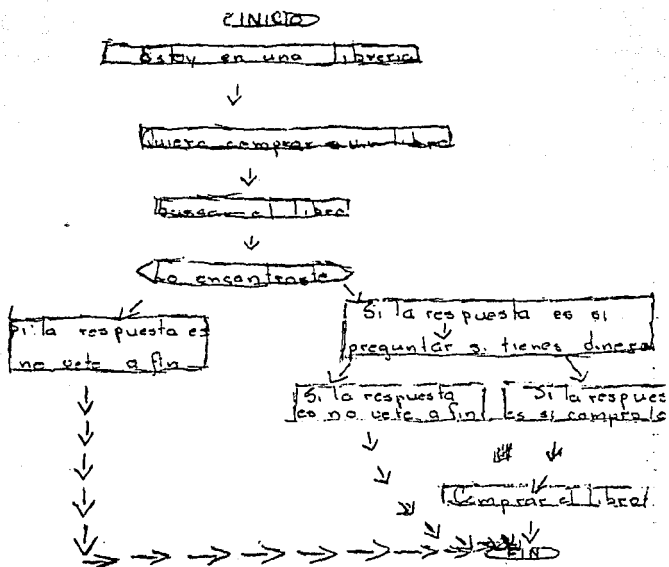 INICIO
Estoy en una librería
Quiero comprar un libro
buscar el libro
Lo encontraste
Si la respuesta es
no vete a fin
Si la respuesta es si
preguntar si tienes dinero
Si la respuesta
es no vete a fin
Si la respues
es si compralo
Comprar el libro
FIN